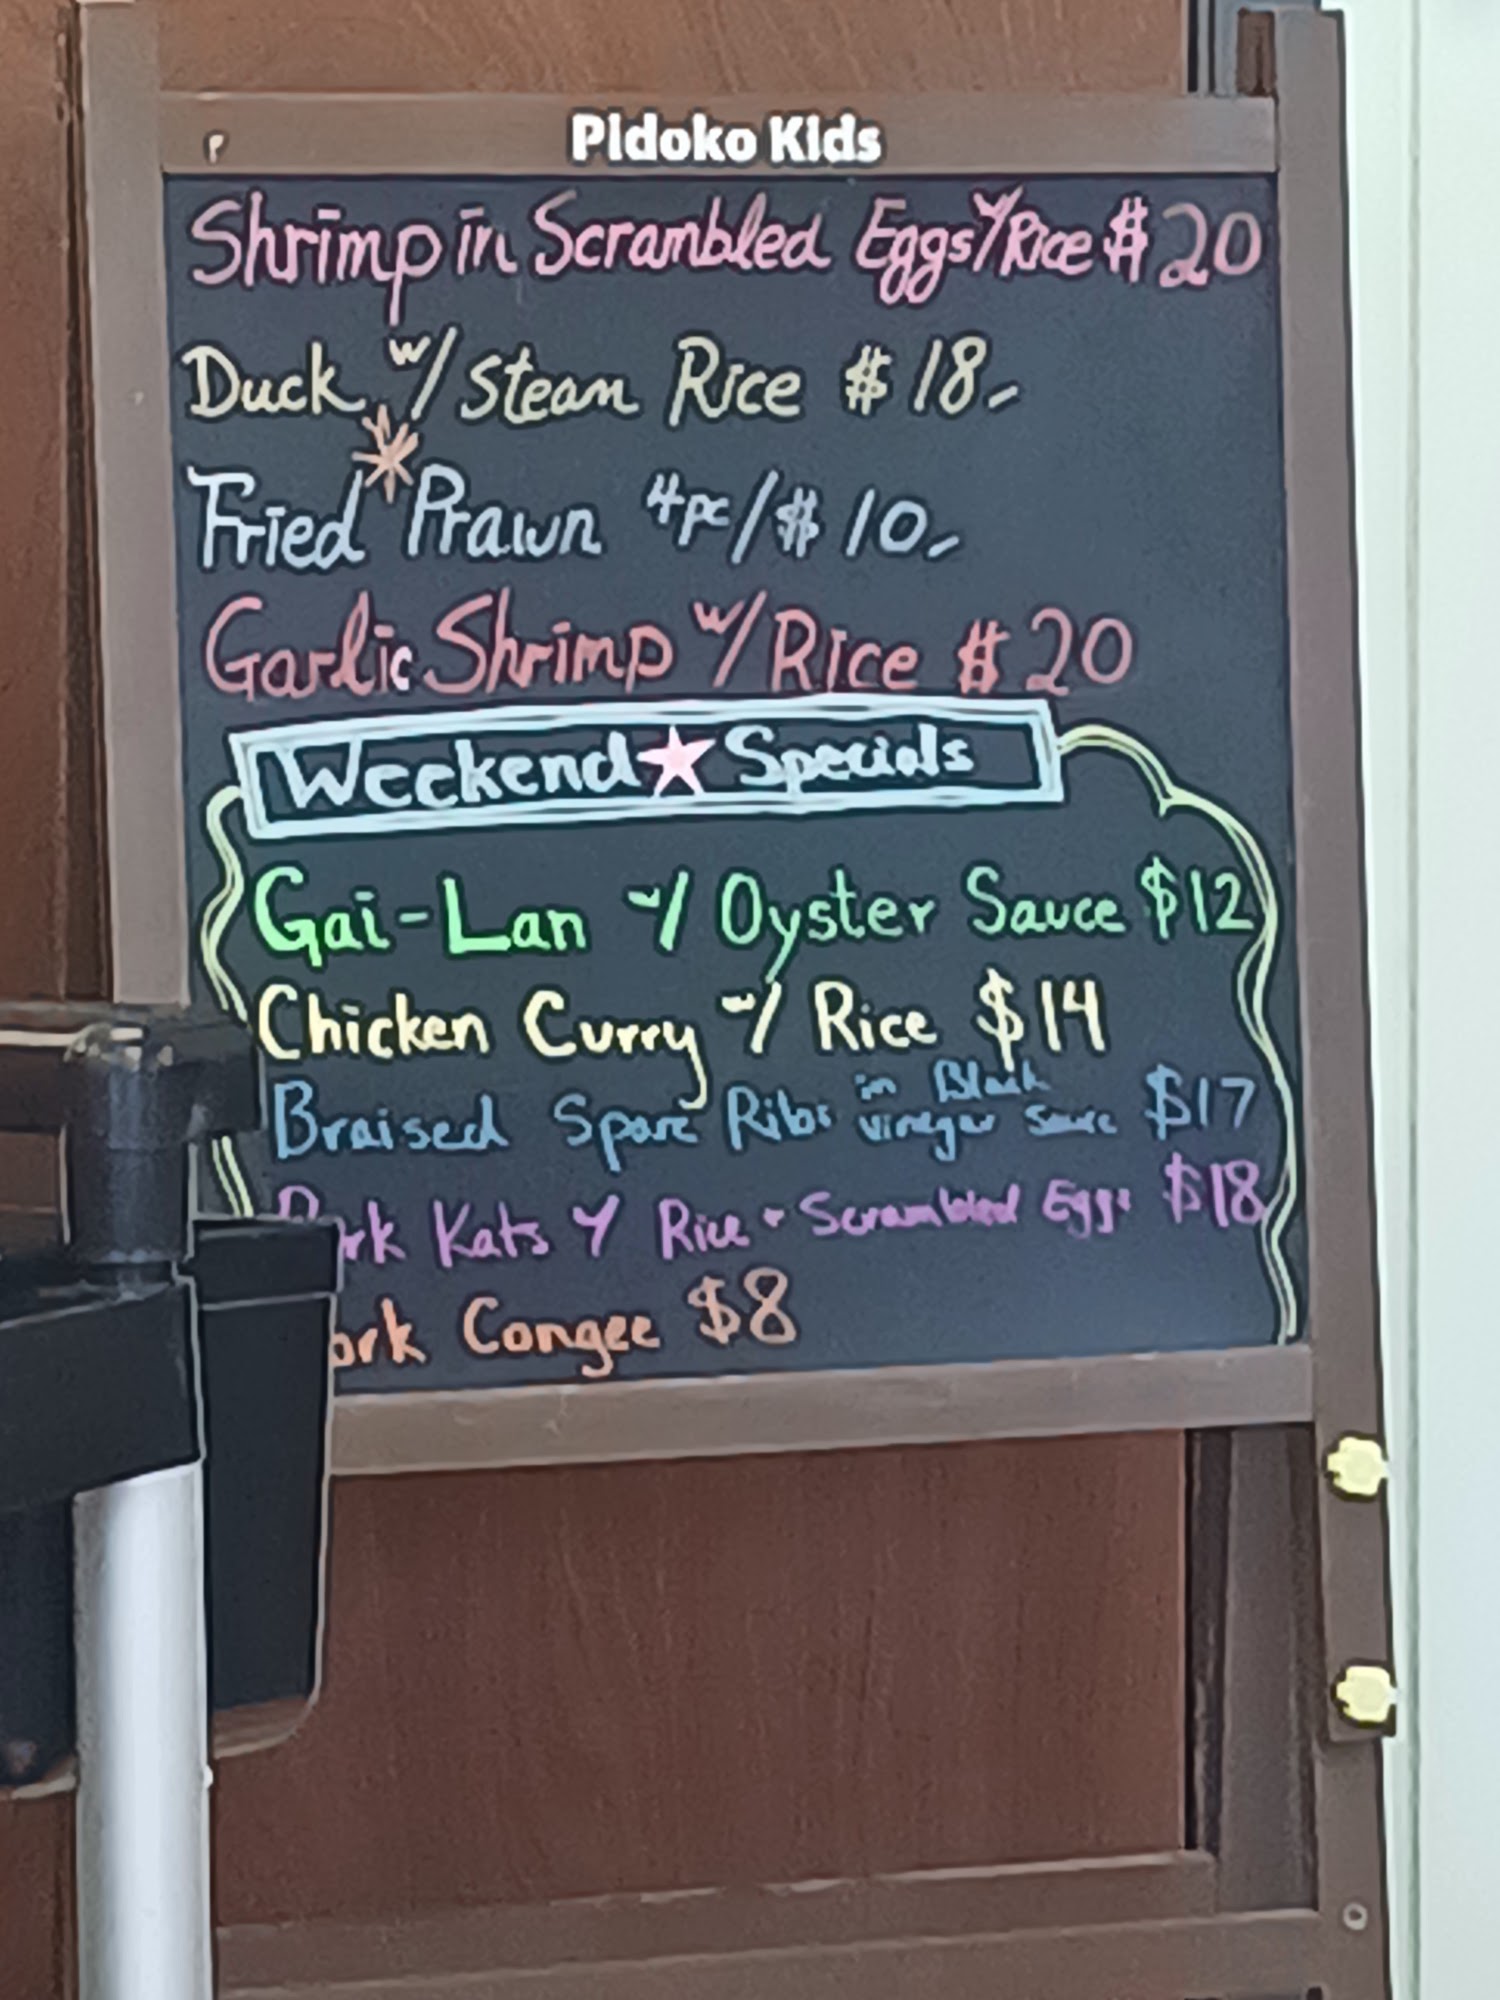 Pidoko Kids
Shrimp in Scrambled Eggs w/ Rice $20
Duck w/ Steam Rice $18
Fried Prawn 4pc/$10
Garlic Shrimp w/ Rice $20
Weekend Specials
Gai-Lan w/ Oyster Sauce $12
Chicken Curry w/ Rice $14
Braised Spare Ribs in Black vinegar Sauce $17
Pork Kats w/ Rice + Scrambled Eggs $18
ork Congee $8